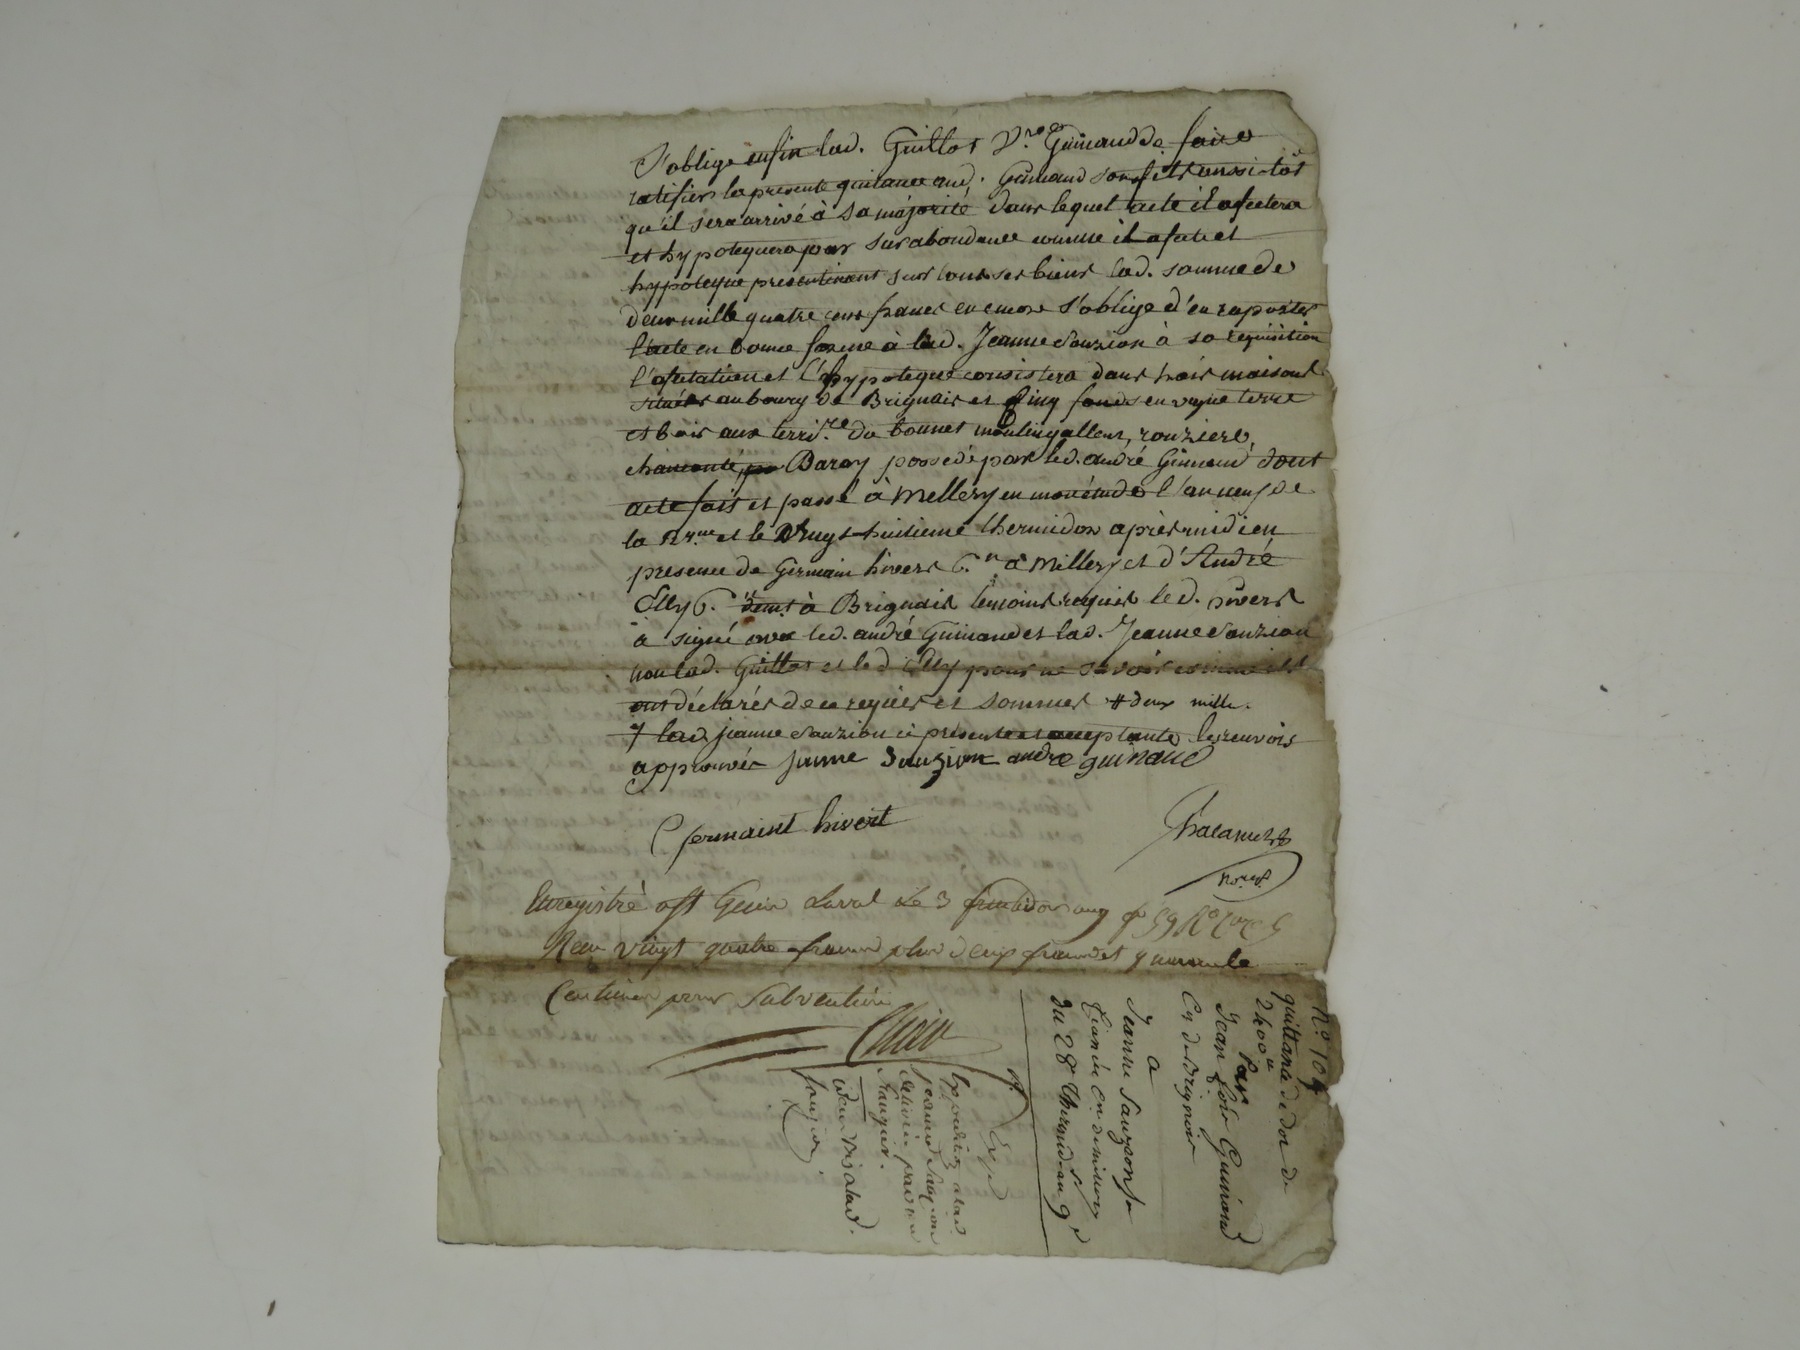 S'oblige enfin lad. Guillot V.re Guinand de faire
ratifier la presente quitance aud. Guinand son fils aussi-tôt
qu'il sera arrivé à sa majorité dans lequel acte il afectera
et hypotequera par surabondance comme il afecte et
hypoteque presentement sur tous ses biens lad. somme de
deux mille quatre cens francs encore s'oblige d'en raporter
l'acte en bonne forme à lad. Jeanne Sauzion à sa requisition
l'afectation et l'hypoteque consistera dans trois maisons
situées au bourg de Brignais et cinq fonds en vigne terre
et bois aux terri.re du bonnet moulingallent, rouziere,
Baray possedé par led. andré Guinand dont
acte fait et passé à Mellery en mon étude l'an neuf de
la R.que et le Vingt-huitieme thermidor après midi en
presence de Germain hivert C.n à Millery et d'André
Elly C. dem.t à Brignais temoins requis led. hivert
a signé avec led. andré Guinand et lad. Jeanne Sauzion
non lad. Guillot et led. Elly pour ne savoir comme ils
ont déclarés de ce requis et sommés # deux mille.
lad. jeanne Sauzion ici présente et acceptante les renvois
approuvés jeanne Sauzion andré guinand
Germaint hivert
Enregistré a St Genis Laval Le 3 fructidor an 9 f° 59 R° C
Recu vingt quatre francs plus deux francs et quarante
Centimes pour Subvention
N° 109
quittance de dot de
2400
Par
Jean Guinand
C.n de Brignais
a
Jeanne Sauzion
C.n de millery
du 28 Thermid. an 9
Exp.d
Expedition a lad.
jeanne Sauzion